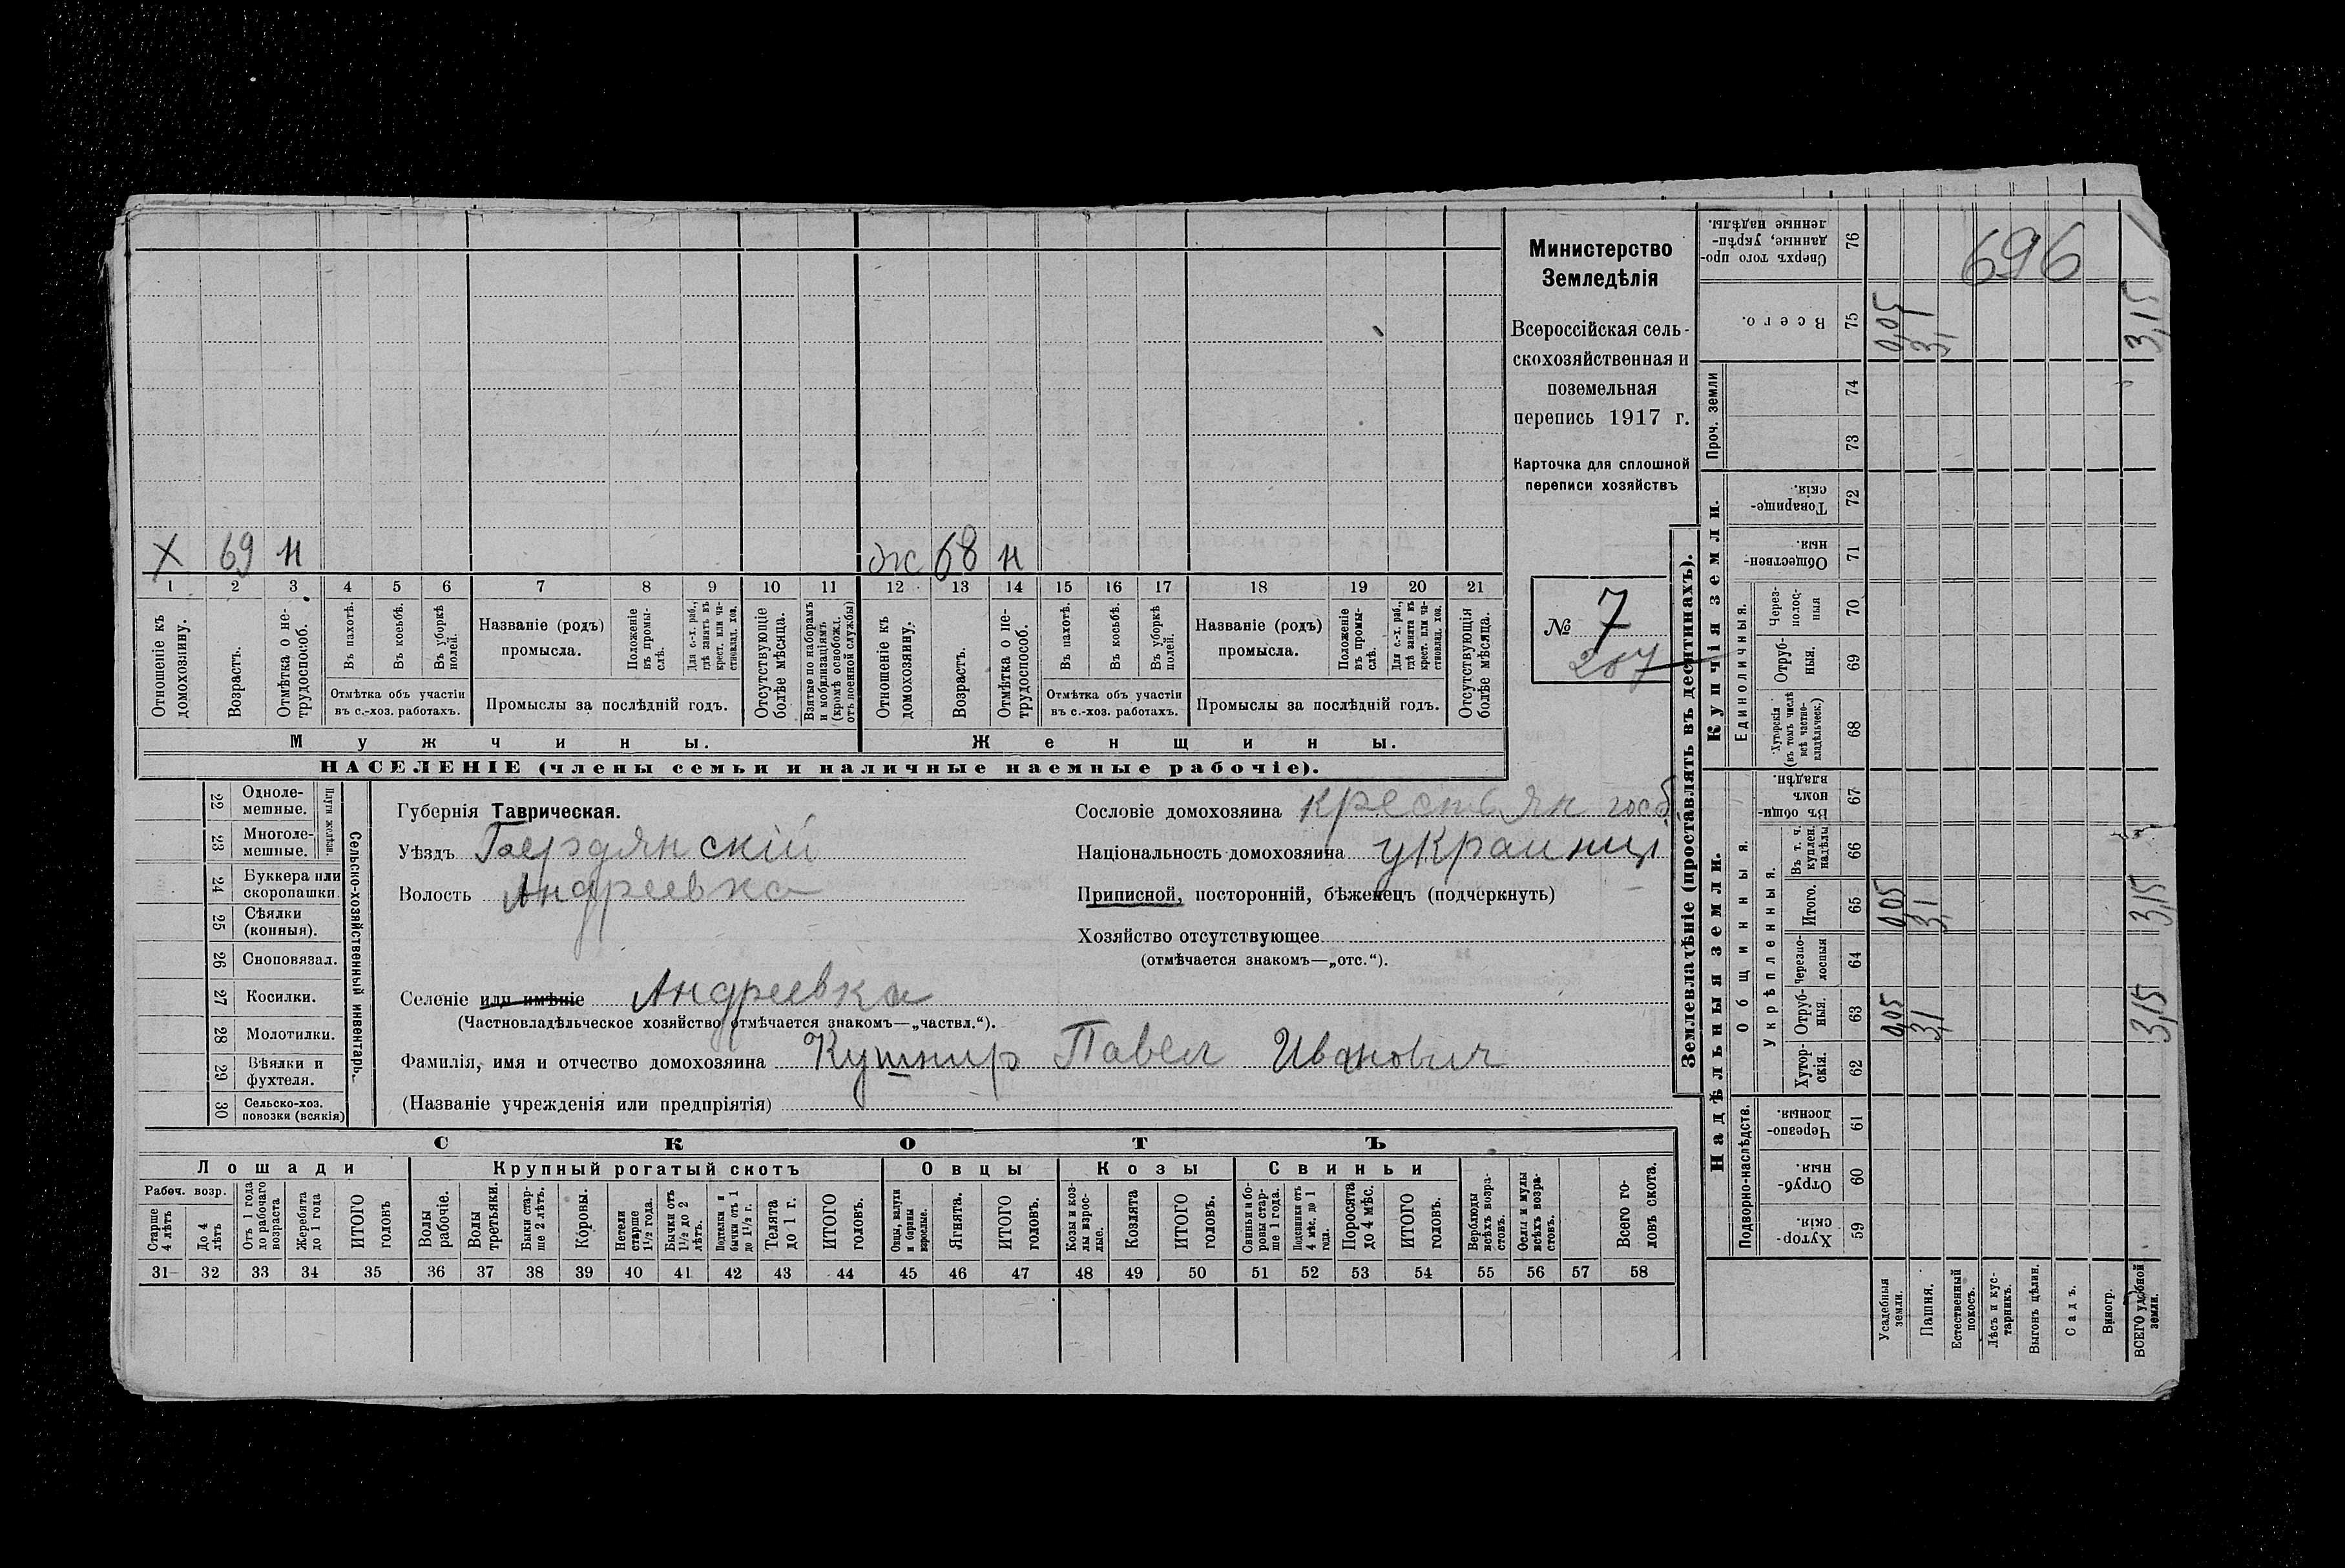 Министерство
Земледѣлія
Всероссійская сель-
скохозяйственная и
поземельная
перепись 1917 г.
Карточка для сплошной
переписи хозяйствъ
№ 7
207
Х 69 н
ж 68 н
1 2 3 4 5 6 7 8 9 10 11 12 13 14 15 16 17 18 19 20 21
Отношеніе къ домохозяину.
Возрастъ.
Отмѣтка о не-трудоспособ.
Въ пахотѣ.
Въ косьбѣ.
Въ уборкѣ полей.
Отмѣтка объ участіи
въ с.-хоз. работахъ.
Названіе (родъ)
промысла.
Положеніе въ промы-слѣ.
Для с.-х. раб., гдѣ занятъ въ крест. или ча-стновлад. хоз.
Промыслы за послѣдній годъ.
Отсутствующіе болѣе мѣсяца.
Взятые по наборамъ и мобилизаціямъ (кромѣ освобожд. отъ военной службы)
Отношеніе къ домохозяину.
Возрастъ.
Отмѣтка о не-трудоспособ.
Въ пахотѣ.
Въ косьбѣ.
Въ уборкѣ полей.
Отмѣтка объ участіи
въ с.-хоз. работахъ.
Названіе (родъ)
промысла.
Положеніе въ промы-слѣ.
Для с.-х. раб., гдѣ занята въ крест. или ча-стновлад. хоз.
Промыслы за послѣдній годъ.
Отсутствующія болѣе мѣсяца.
Мужчины.
Женщины.
НАСЕЛЕНІЕ (члены семьи и наличные наемные рабочіе).
22 Одноле-мешные.
23 Многоле-мешные.
Плуги желѣзн.
24 Буккера или скоропашки.
25 Сѣялки (конныя).
26 Сноповязал.
27 Косилки.
28 Молотилки.
29 Вѣялки и фухтеля.
30 Сельско-хоз. повозки (всякія)
Сельско-хозяйственный инвентарь.
Губернія Таврическая.
Уѣздъ Бердянскій
Волость Андреевка
Сословіе домохозяина крестьян госб
Національность домохозяина украинц
Приписной, посторонній, бѣженецъ (подчеркнуть)
Хозяйство отсутствующее
(отмѣчается знакомъ—„отс.“).
Селеніе или имѣніе Андреевка
(Частновладѣльческое хозяйство отмѣчается знакомъ—„частвл.“).
Фамилія, имя и отчество домохозяина Кушнир Павел Иванович
(Названіе учрежденія или предпріятія)
СКОТЪ
Лошади Крупный рогатый скотъ Овцы Козы Свиньи
Рабоч. возр.
Старше 4 лѣтъ
До 4 лѣтъ
Отъ 1 года до рабочаго возраста
Жеребята до 1 года
ИТОГО головъ
Волы рабочіе.
Волы третьяки.
Быки стар-ше 2 лѣтъ.
Коровы.
Нетели старше 1½ года.
Бычки отъ 1½ до 2 лѣтъ.
Подтелки и бычки отъ 1 до 1½ г.
Телята до 1 г.
ИТОГО головъ.
Овцы, валухи и бараны взрослые.
Ягнята.
ИТОГО головъ.
Козы и коз-лы взрос-лые.
Козлята
ИТОГО головъ.
Свиньи и бо-ровы стар-ше 1 года.
Подсвинки отъ 4 мѣс. до 1 года.
Поросята до 4 мѣс.
ИТОГО головъ.
Верблюды всѣхъ возра-стовъ.
Ослы и мулы всѣхъ возра-стовъ.
Всего го-ловъ скота.
31 32 33 34 35 36 37 38 39 40 41 42 43 44 45 46 47 48 49 50 51 52 53 54 55 56 57 58
Землевладѣніе (проставлять въ десятинахъ).
Надѣльныя земли.
Купчія земли.
Проч. земли
Подворно-наслѣдств.
Общинныя.
Укрѣпленныя.
Единоличныя.
Сверхъ того про-данные, укрѣп-ленные надѣлы. 76
Всего. 75 0,05 3,1 3,15
696
74
73
Товарище-скія. 72
Обществен-ныя. 71
Через-полос-ныя 70
Отруб-ныя. 69
Хуторскія (въ томъ числѣ всѣ частно-владѣльческ.) 68
Въ общин-номъ владѣн. 67
Въ т. ч. куплен. надѣлы 66
Итого. 65 0,05 3,1 3,15
Черезпо-лосныя 64
Отруб-ныя. 63 0,05 3,1 3,15
Хутор-скія. 62
Черезпо-лосныя. 61
Отруб-ныя. 60
Хутор-скія. 59
Усадебныя земли.
Пашня.
Естественный покосъ.
Лѣсъ и кус-тарникъ.
Выгонъ цѣлин.
Садъ.
Виногр.
ВСЕГО удобной земли.